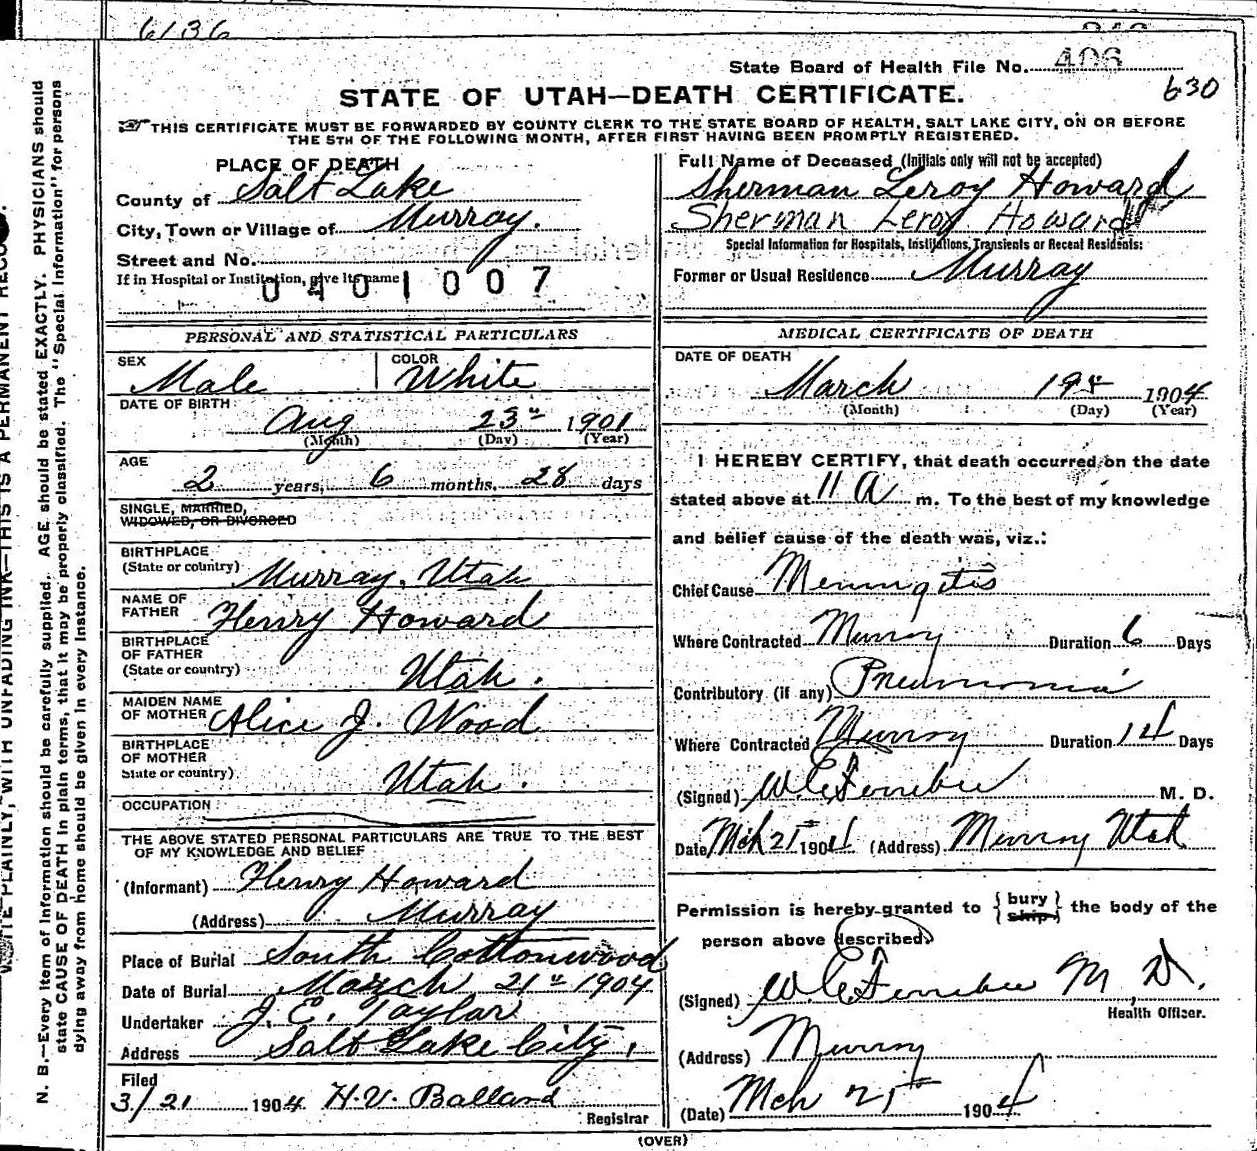 6136
State Board of Health File No. 406
630
STATE OF UTAH—DEATH CERTIFICATE.
THIS CERTIFICATE MUST BE FORWARDED BY COUNTY CLERK TO THE STATE BOARD OF HEALTH, SALT LAKE CITY, ON OR BEFORE
THE 5TH OF THE FOLLOWING MONTH, AFTER FIRST HAVING BEEN PROMPTLY REGISTERED.
PLACE OF DEATH
County of Salt Lake
City, Town or Village of Murray.
Street and No.
If in Hospital or Institution, give its name
0401007
Full Name of Deceased (Initials only will not be accepted)
Sherman Leroy Howard
Sherman Leroy Howard
Special Information for Hospitals, Institutions, Transients or Recent Residents:
Former or Usual Residence Murray
PERSONAL AND STATISTICAL PARTICULARS
SEX
Male
COLOR
White
DATE OF BIRTH
Aug 23rd 1901
(Month) (Day) (Year)
AGE
2 years, 6 months, 28 days
SINGLE, MARRIED,
WIDOWED, OR DIVORCED
BIRTHPLACE
(State or country) Murray, Utah
NAME OF
FATHER Henry Howard
BIRTHPLACE
OF FATHER
(State or country) Utah.
MAIDEN NAME
OF MOTHER Alice J. Wood
BIRTHPLACE
OF MOTHER
State or country) Utah.
OCCUPATION
THE ABOVE STATED PERSONAL PARTICULARS ARE TRUE TO THE BEST
OF MY KNOWLEDGE AND BELIEF
(Informant) Henry Howard
(Address) Murray
Place of Burial South Cottonwood
Date of Burial March 21st 1904
Undertaker J. E. Taylor
Address Salt Lake City,
Filed
3/21 1904 H.V. Ballard
Registrar
MEDICAL CERTIFICATE OF DEATH
DATE OF DEATH
March 19th 1904
(Month) (Day) (Year)
I HEREBY CERTIFY, that death occurred on the date
stated above at 11 A m. To the best of my knowledge
and belief cause of the death was, viz.:
Chief Cause Meningitis
Where Contracted Murray Duration 6 Days
Contributory (if any) Pneumonia
Where Contracted Murray Duration 14 Days
(Signed) M. D.
Date Mch 21st 1904 (Address) Murray Utah
Permission is hereby granted to {bury} the body of the
{ship}
person above described.
(Signed) M.D.
Health Officer.
(Address) Murray
(Date) Mch 21st 1904
(OVER)
N. B.—Every item of information should be carefully supplied. AGE should be stated EXACTLY. PHYSICIANS should
state CAUSE OF DEATH in plain terms, that it may be properly classified. The "Special Information" for persons
dying away from home should be given in every instance.
WRITE PLAINLY, WITH UNFADING INK—THIS IS A PERMANENT RECORD.